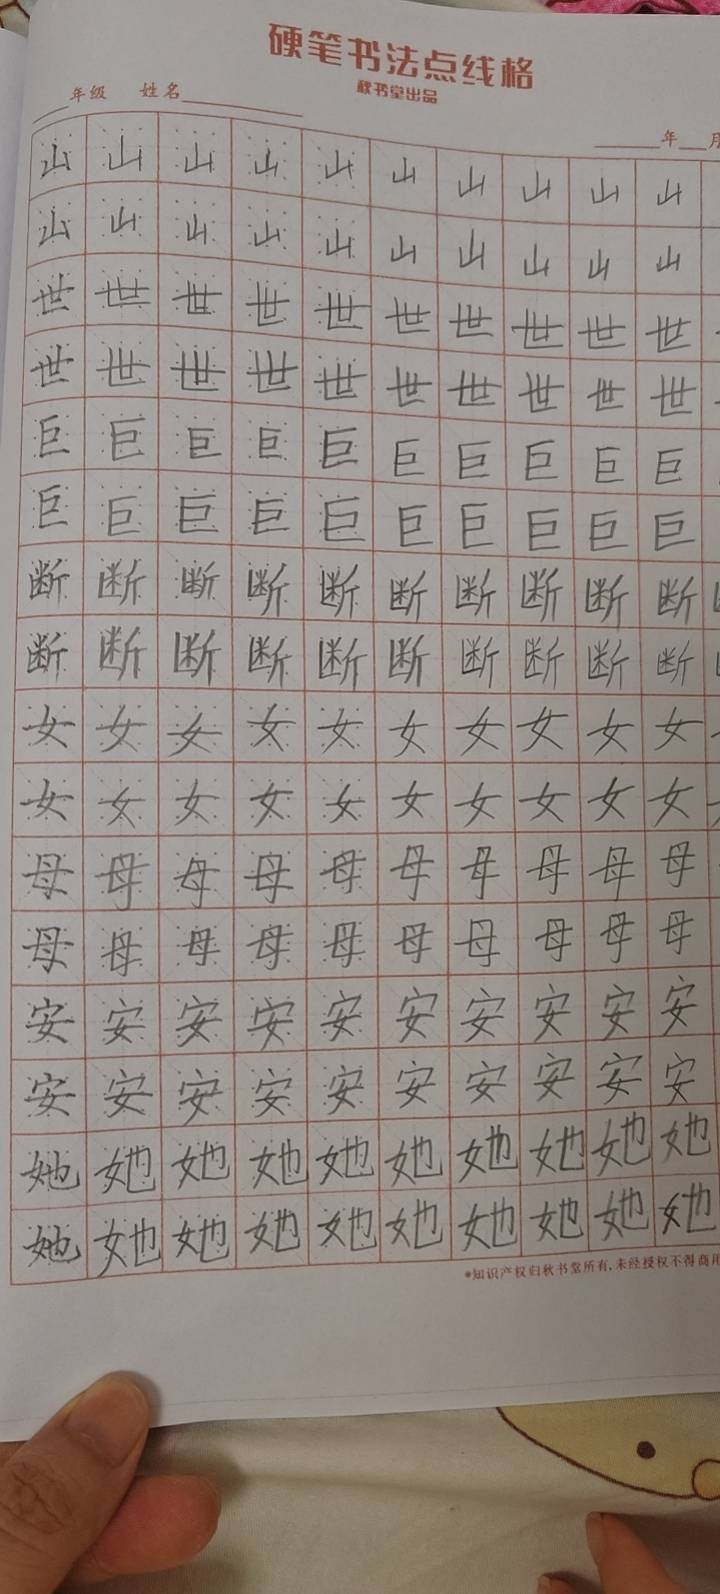 硬笔书法点线格
秋书堂出品
年级 姓名
年 月
山 山 山 山 山 山 山 山 山 山
山 山 山 山 山 山 山 山 山 山
世 世 世 世 世 世 世 世 世 世
世 世 世 世 世 世 世 世 世 世
巨 巨 巨 巨 巨 巨 巨 巨 巨 巨
巨 巨 巨 巨 巨 巨 巨 巨 巨 巨
断 断 断 断 断 断 断 断 断 断
断 断 断 断 断 断 断 断 断 断
女 女 女 女 女 女 女 女 女 女
女 女 女 女 女 女 女 女 女 女
母 母 母 母 母 母 母 母 母 母
母 母 母 母 母 母 母 母 母 母
安 安 安 安 安 安 安 安 安 安
安 安 安 安 安 安 安 安 安 安
她 她 她 她 她 她 她 她 她 她
她 她 她 她 她 她 她 她 她 她
*知识产权归秋书堂所有,未经授权不得商用